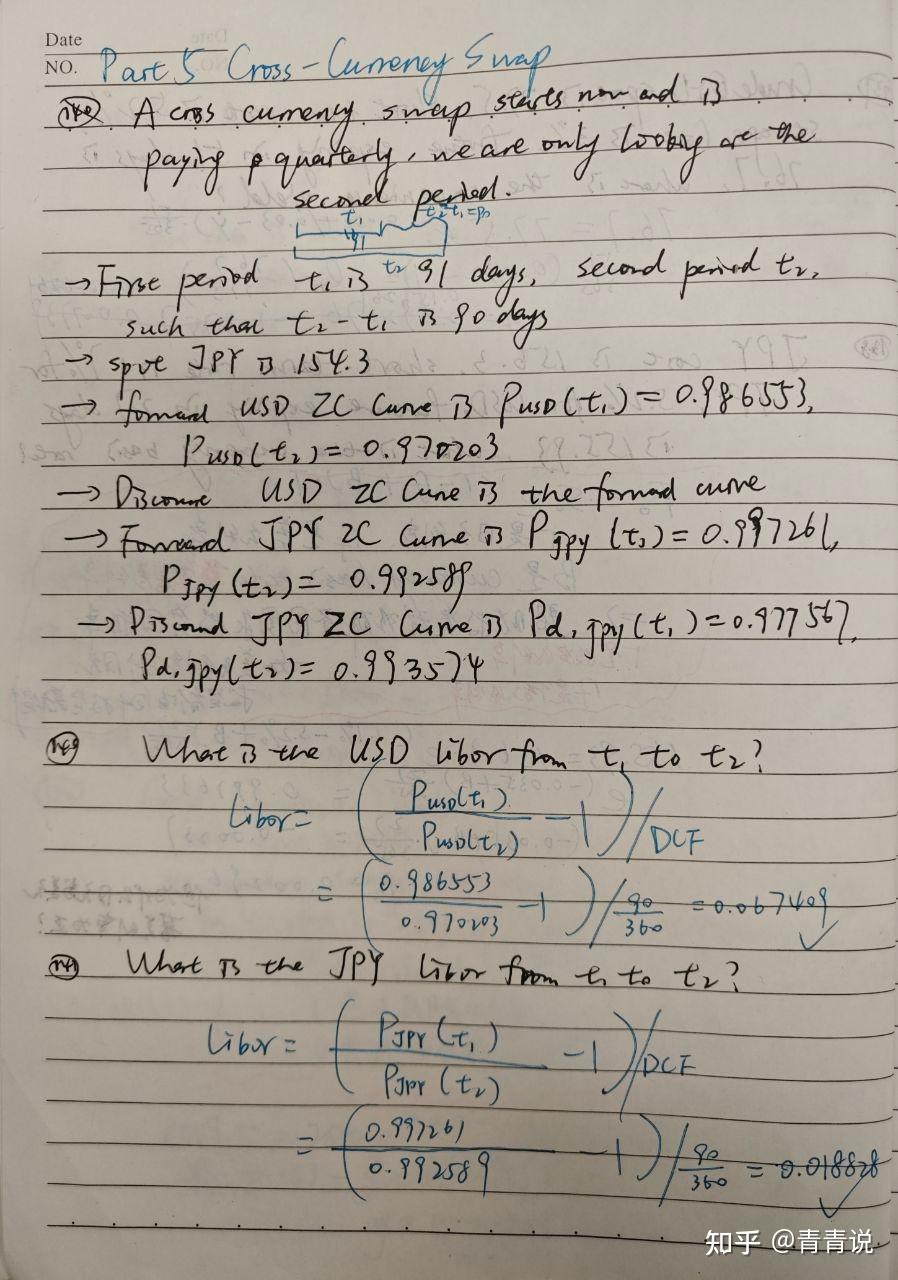 Date
NO. Part 5 Cross-Currency Swap
A cross currency swap starts now and is
paying quarterly, we are only looking are the
second period.
t₁ t₂-t₁=90
91
t₂
→ First period t₁ is 91 days, second period t₂,
such that t₂-t₁ is 90 days
→ spot JPY is 154.3
→ forward USD ZC Curve is Pusd(t₁) = 0.986553,
Pusd(t₂) = 0.970203
→ Discount USD ZC Curve is the forward curve
→ Forward JPY ZC Curve is PJpy(t₁) = 0.997261,
PJpy(t₂) = 0.992589
→ Discound JPY ZC Curve is Pd,jpy(t₁) = 0.977567,
Pd,jpy(t₂) = 0.993574
What is the USD libor from t₁ to t₂?
Libor = (Pusd(t₁)/Pusd(t₂) - 1)/DCF
= (0.986553/0.970203 - 1)/(90/360) = 0.067409 ✓
What is the JPY libor from t₁ to t₂?
Libor = (PJPY(t₁)/PJPY(t₂) - 1)/DCF
= (0.997261/0.992589 - 1)/(90/360) = 0.018828 ✓
知乎 @青青说